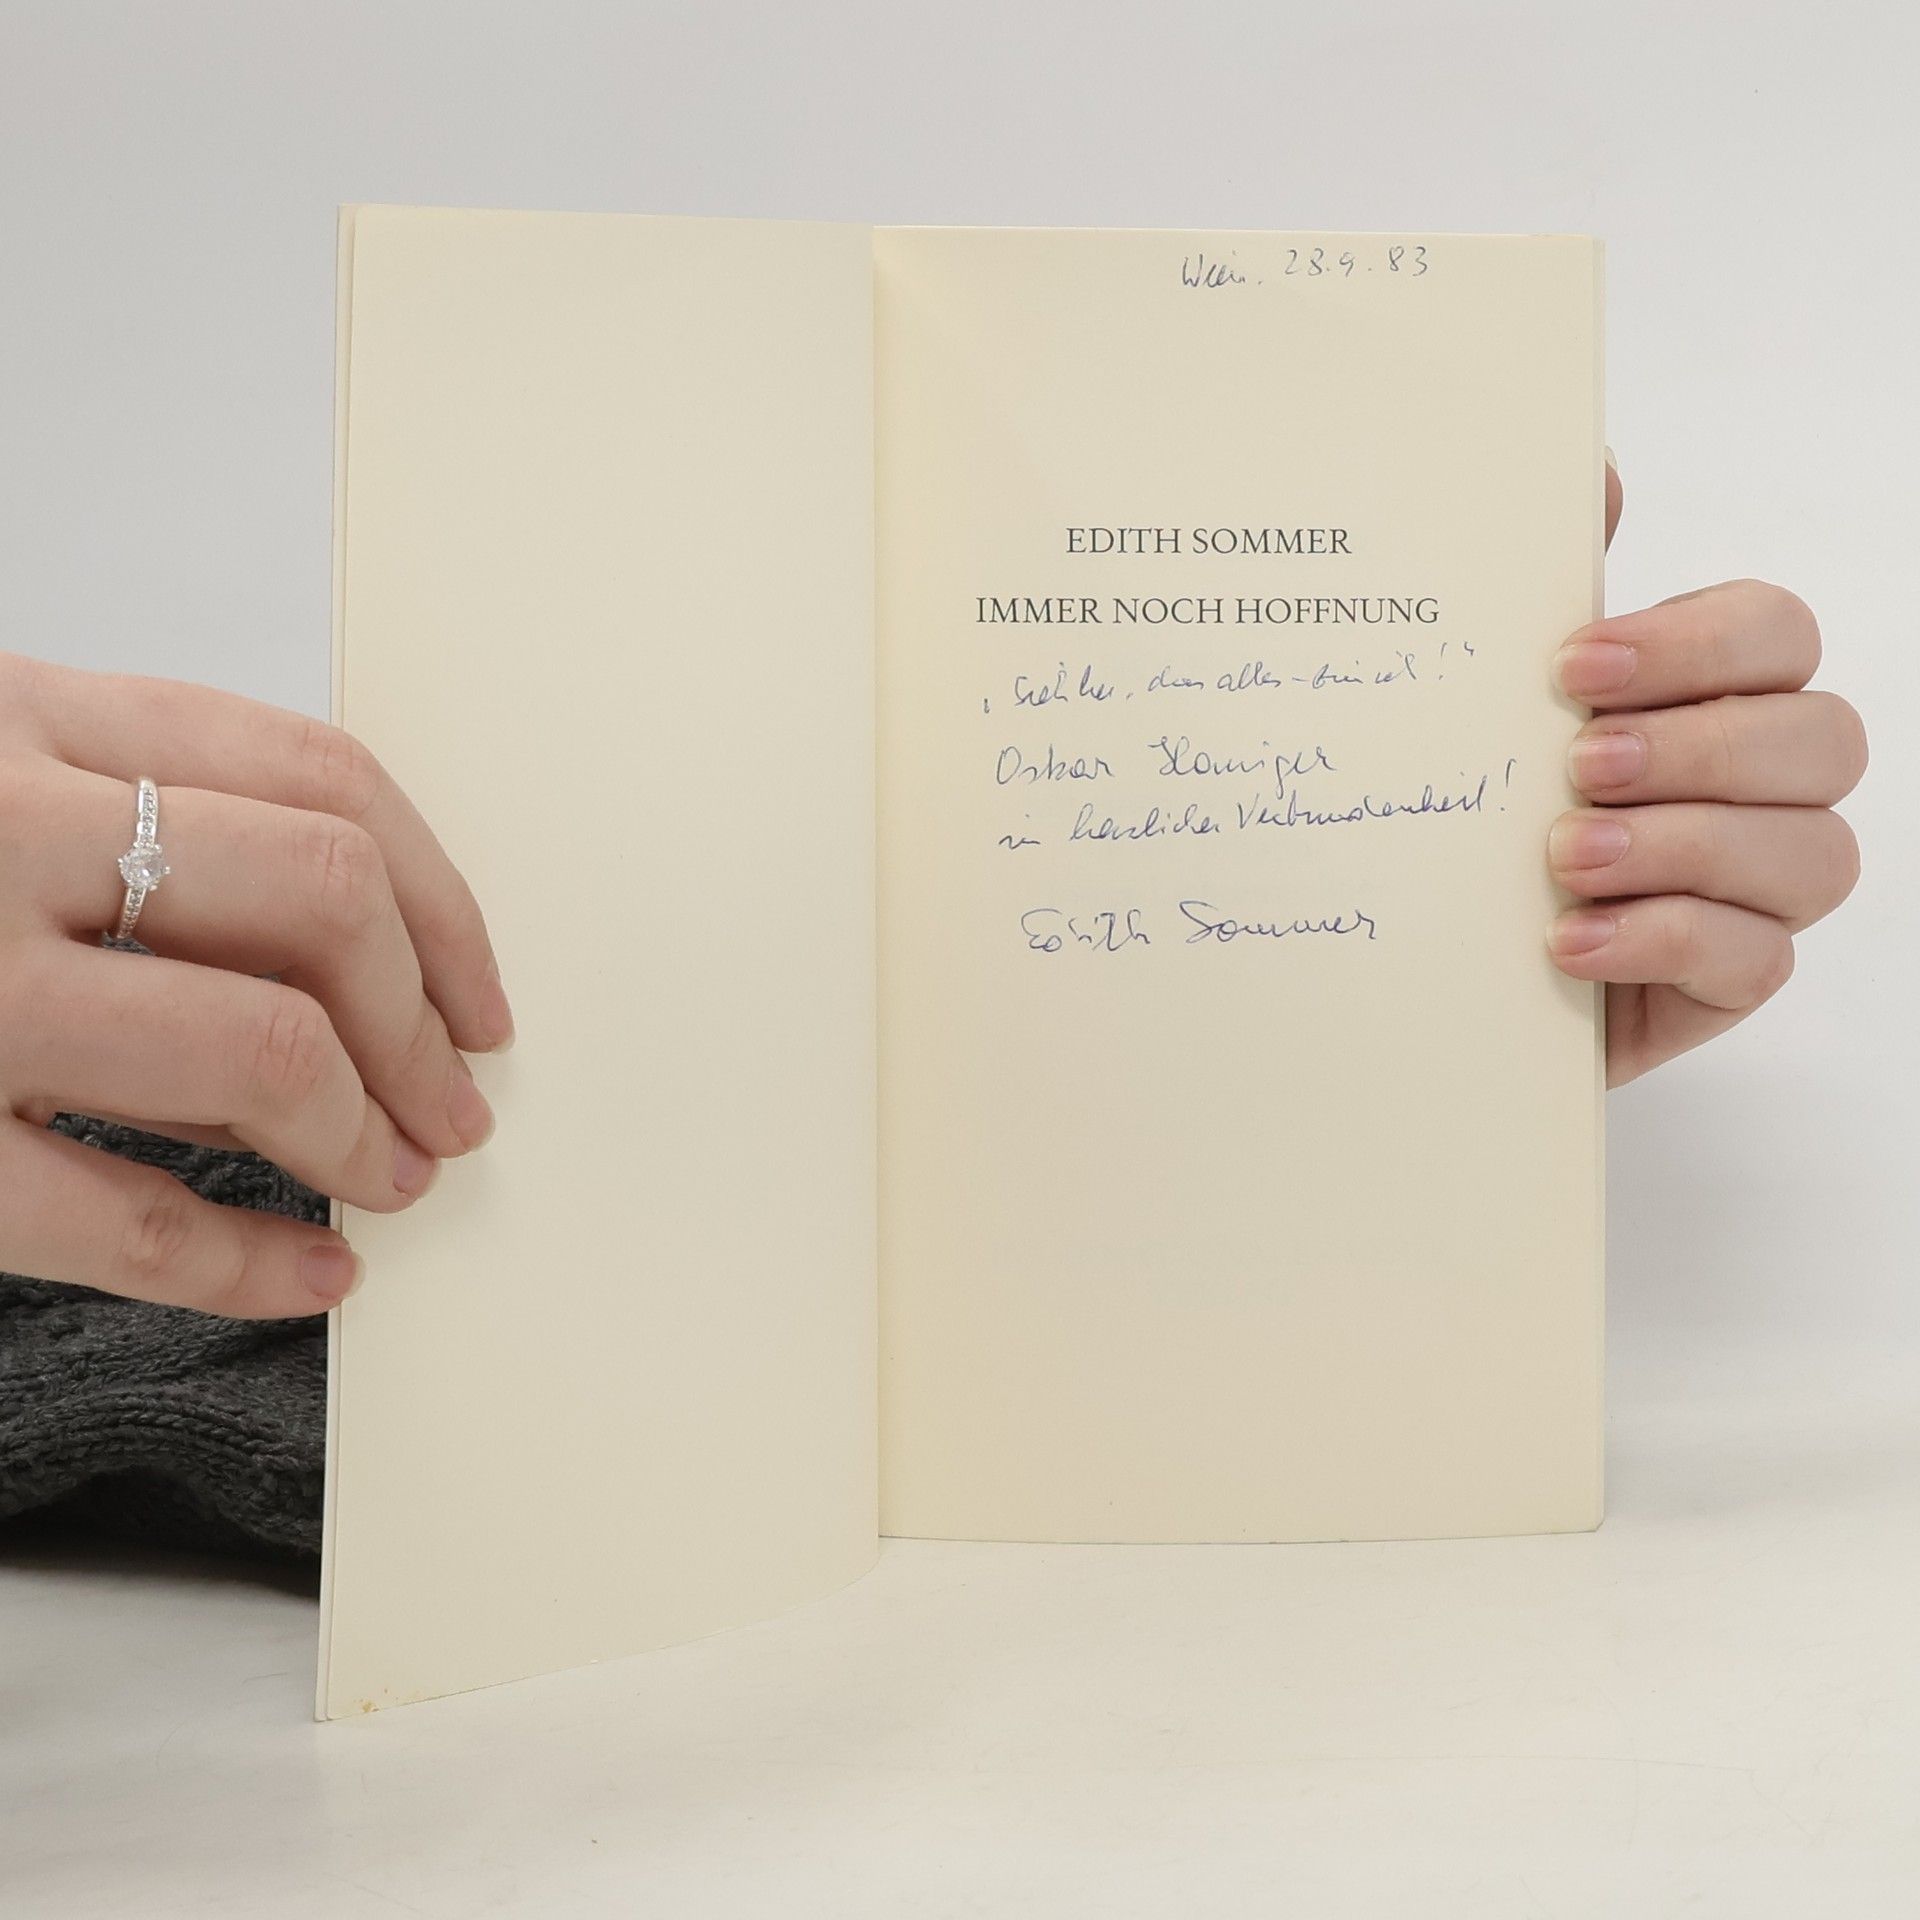 Wien. 28.9.83
EDITH SOMMER
IMMER NOCH HOFFNUNG
das alles
Oskar
in herzlicher Verbundenheit!
Edith Sommer